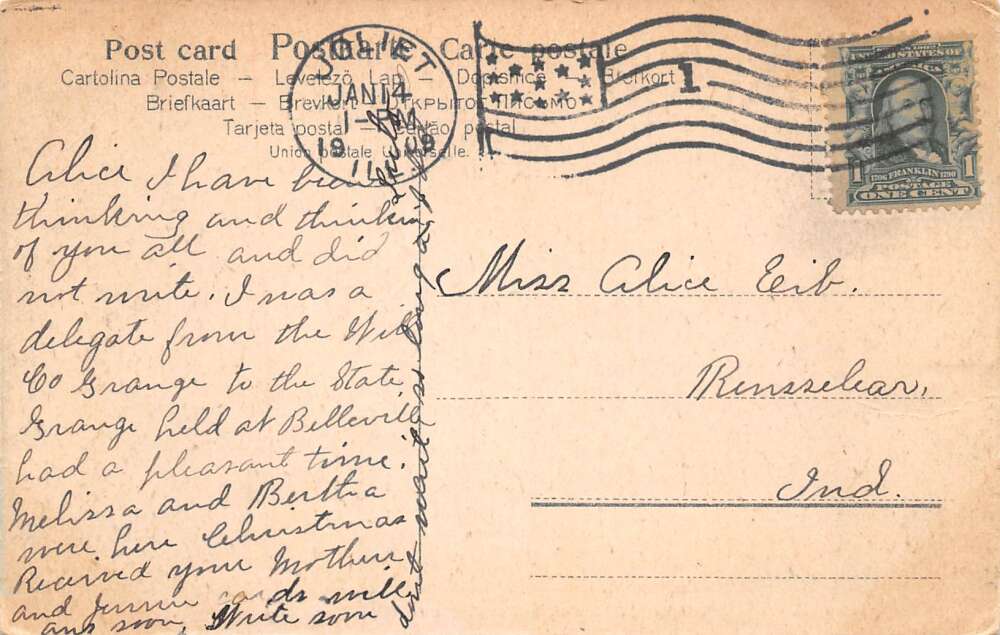 Post card Postkarte Carte postale
Cartolina Postale – Levelező Lap – Dopisnice – Brefkort
Briefkaart – Brevkort – ОТКРЫТОЕ ПИСЬМО
Tarjeta postal –
Union postale universelle.
JOLIET
JAN 14
1-PM
19
ILL.
1
UNITED STATES OF
1706 FRANKLIN 1790
1 POSTAGE 1
ONE CENT
Alice I have been
thinking and thinking
of you all and did
not write. I was a
delegate from the Will
Co Grange to the State
Grange held at Belleville
had a pleasant time.
Melissa and Bertha
were here Christmas
Received your Mothers
and Jennie cards will
ans soon. Write soon
dont wait so long as I
Miss Alice Eib.
Rensselear,
Ind.